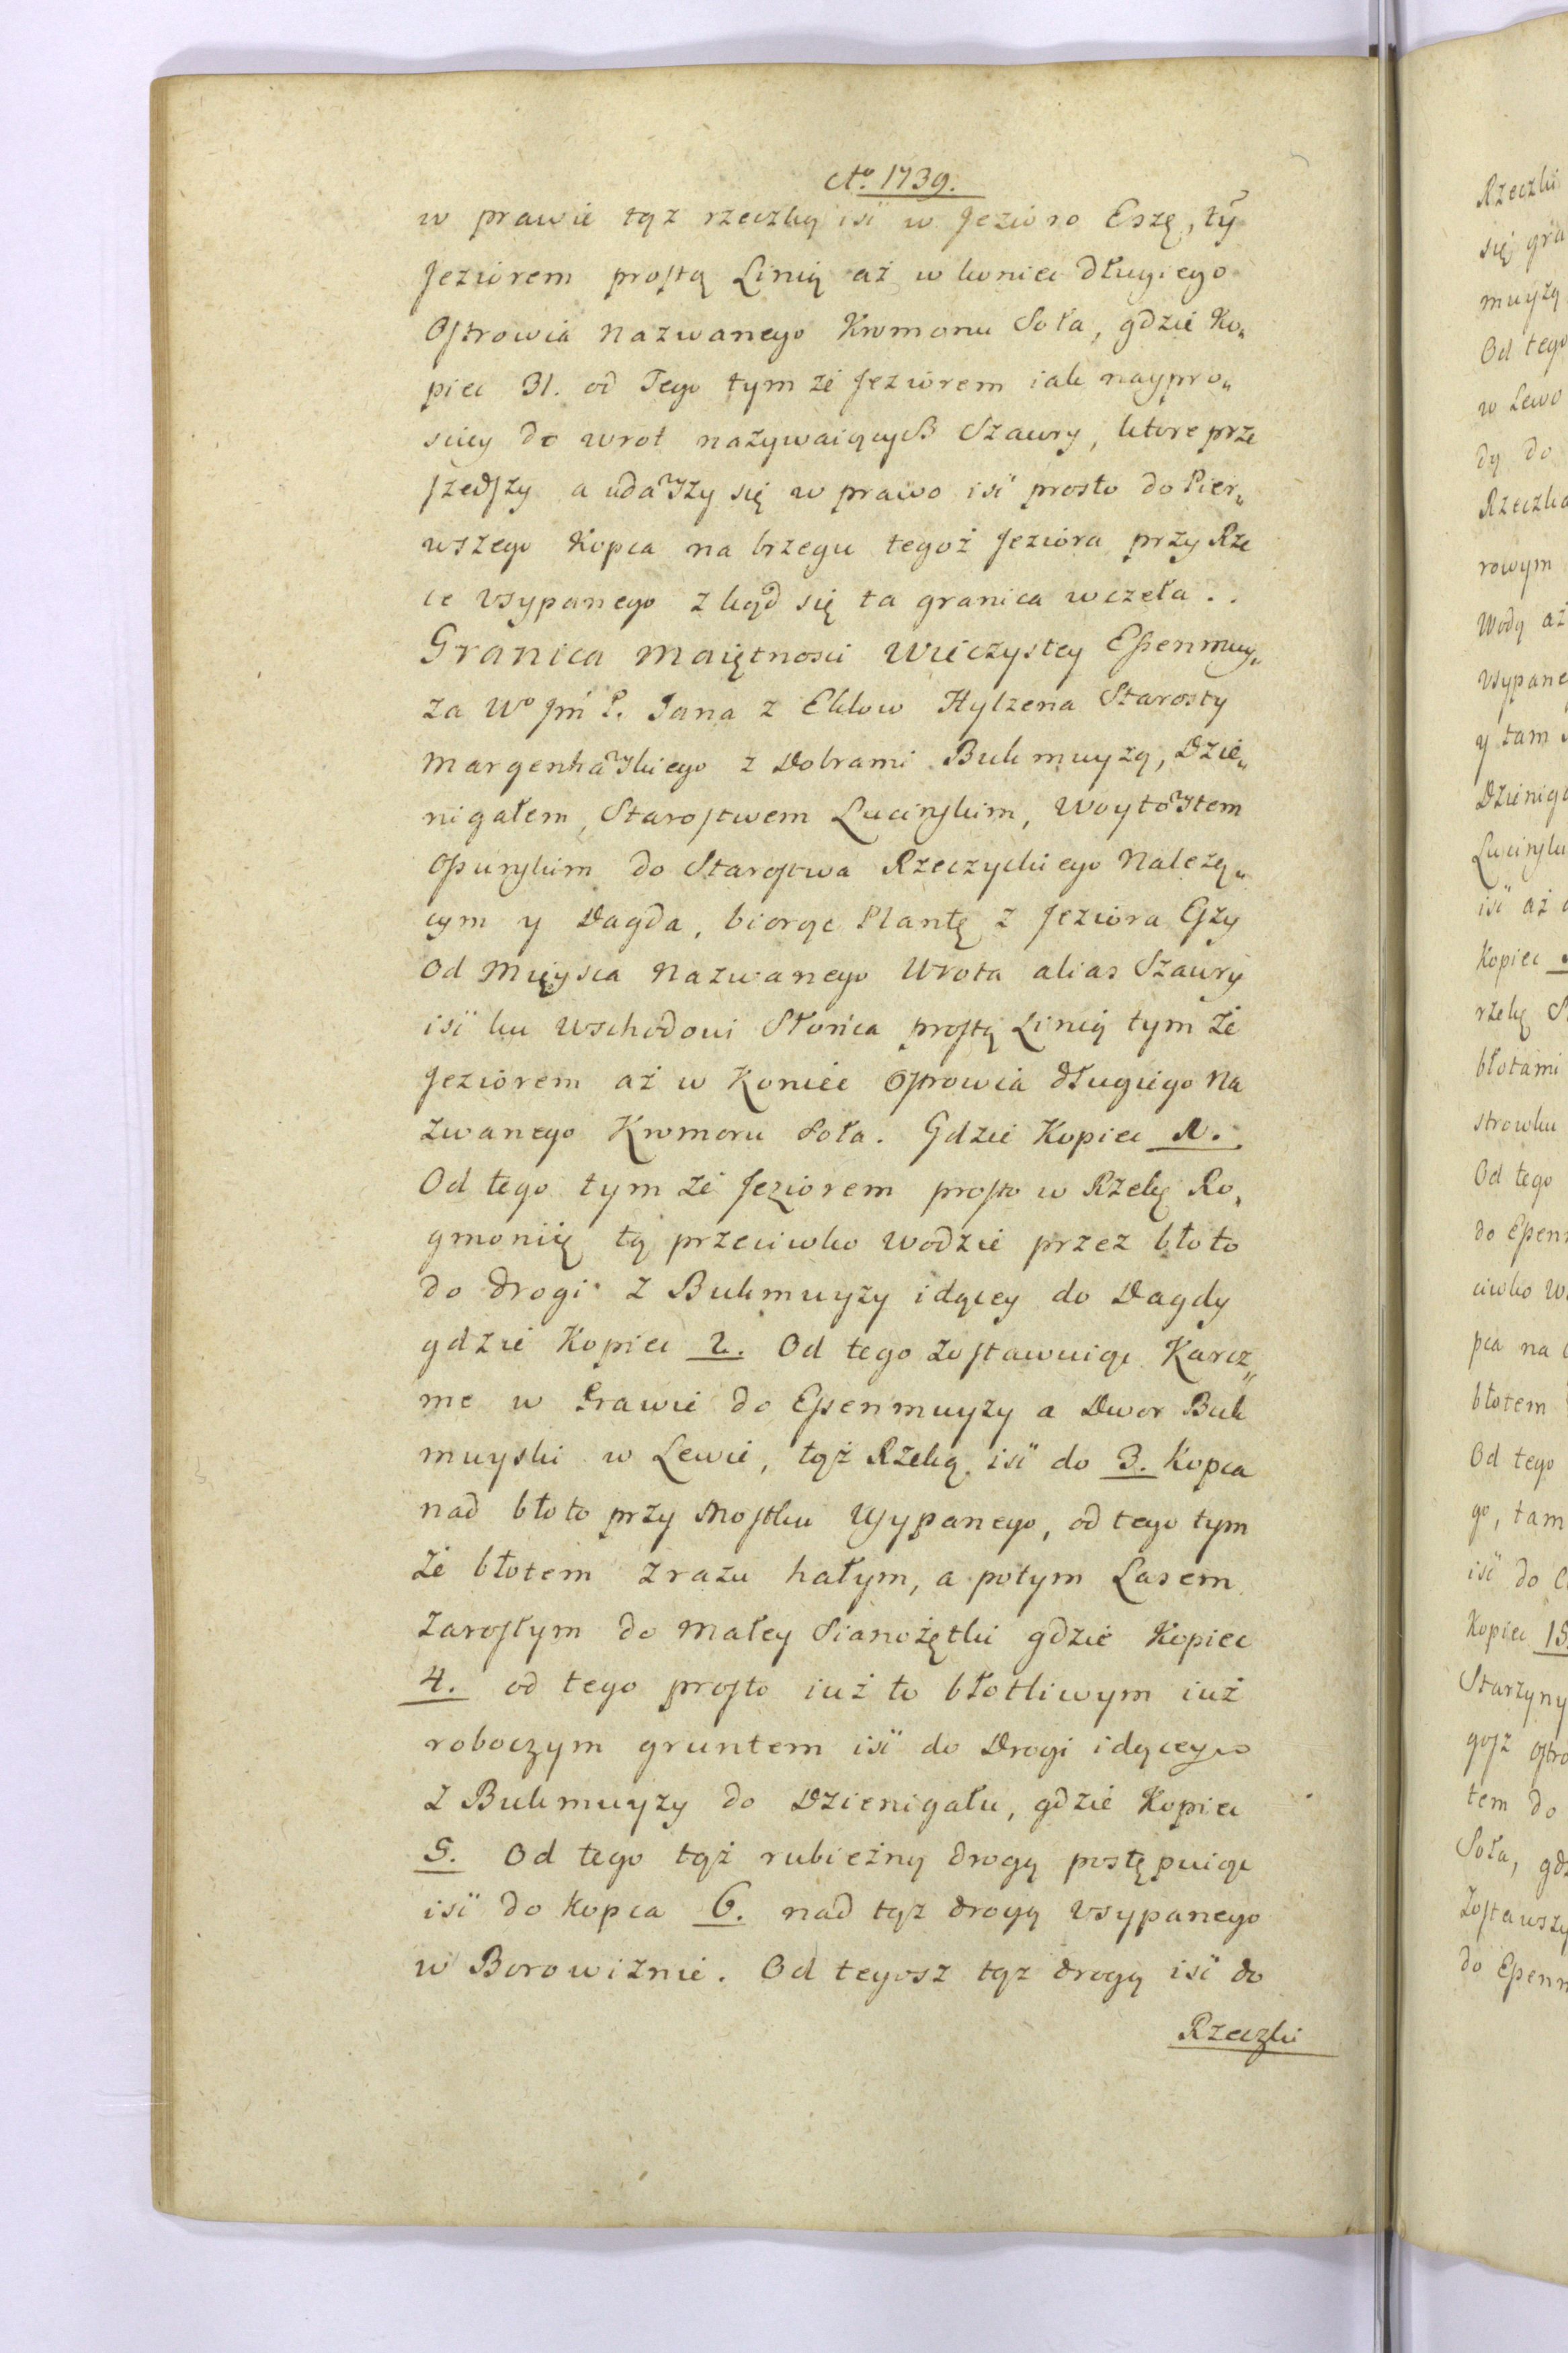 Ao. 1739.
w prawie tąz rzeczką isć w Jezioro Eszę, tỹ
Jeziorem prostą Linią aż w koniec długiego
Ostrowia nazwanego Kromonu Soła, gdzie Ko„
piec 31. od Tego tym że Jeziorem iak naypro„
sciey do wrot nażywaiących Szawry, ktore prze
szedszy a udawszy się w prawo isć prosto do Pier„
wszego Kopca na brzegu tegoż Jeziora przy Rze
ce Vsypanego zkąd się ta granica wczeła..
Granica Maiętnosci Wieczystey Essenmuy„
za Wo Jm P. Jana z Eklow Hylzena Starosty
Margenhawskiego z Dobrami Bukmuyżą, Dzie„
nigałem, Starostwem Lucinskim, Woytowstem
Ossunskim do Starostwa Rzeczyckiego Należą„
cym y Dagda, biorąc Plantę z Jeziora Eszy
Od Mieysca Nazwanego Wrota alias Szawry
isć ku Wschodowi Słońca prostą Linią tym że
Jeziorem aż w Koniec Ostrowia długiego Na
zwanego Kromoru Soła. Gdzie Kopiec 1.
Od tego tym że Jeziorem prosto w Rżekę Ro„
gmonię tą przeciwko wodzie przez błoto
do drogi z Bukmuyży idącey do Dagdy
gdzie Kopiec 2. Od tego zostawuiąc Karcz„
me w Prawie do Essenmuyży a Dwor Buk
muyski w Lewie, tąż Rżeką isć do 3. Kopca
nad błoto przy Mostku Vsypanego, od tego tym
że błotem zrazu hałym, a potym Lasem
zarosłym do małey Sianożętki gdzie Kopiec
4. od tego prosto iuż to błotliwym iuż
roboczym gruntem isć do Drogi idącey
z Bukmuyzy do Dzienigału, gdzie Kopiec
5. Od tego tąż rubieżną drogą postępuiąc
isć do Kopca 6. nad tąz drogą Vsypanego
w Borowiznie. Od tegosz tąz drogą isć do
Rzeczki
Rzeczki
się gra
muyżą
Od tego
w Lewo
dy do
Rzeczka
rowym
Wodą aż
Vsypane
y tam
Dzieniga
Lucinsk
isć aż
Kopiec
rżekę
błotami
strowku
Od tego
do Essen
ciwko w
pca na
błotem
Od tego
go, tam
isć do
Kopiec 15
Starzyny
gosz ostro
tem do
Soła, gd
Zostawszy
do Essenm